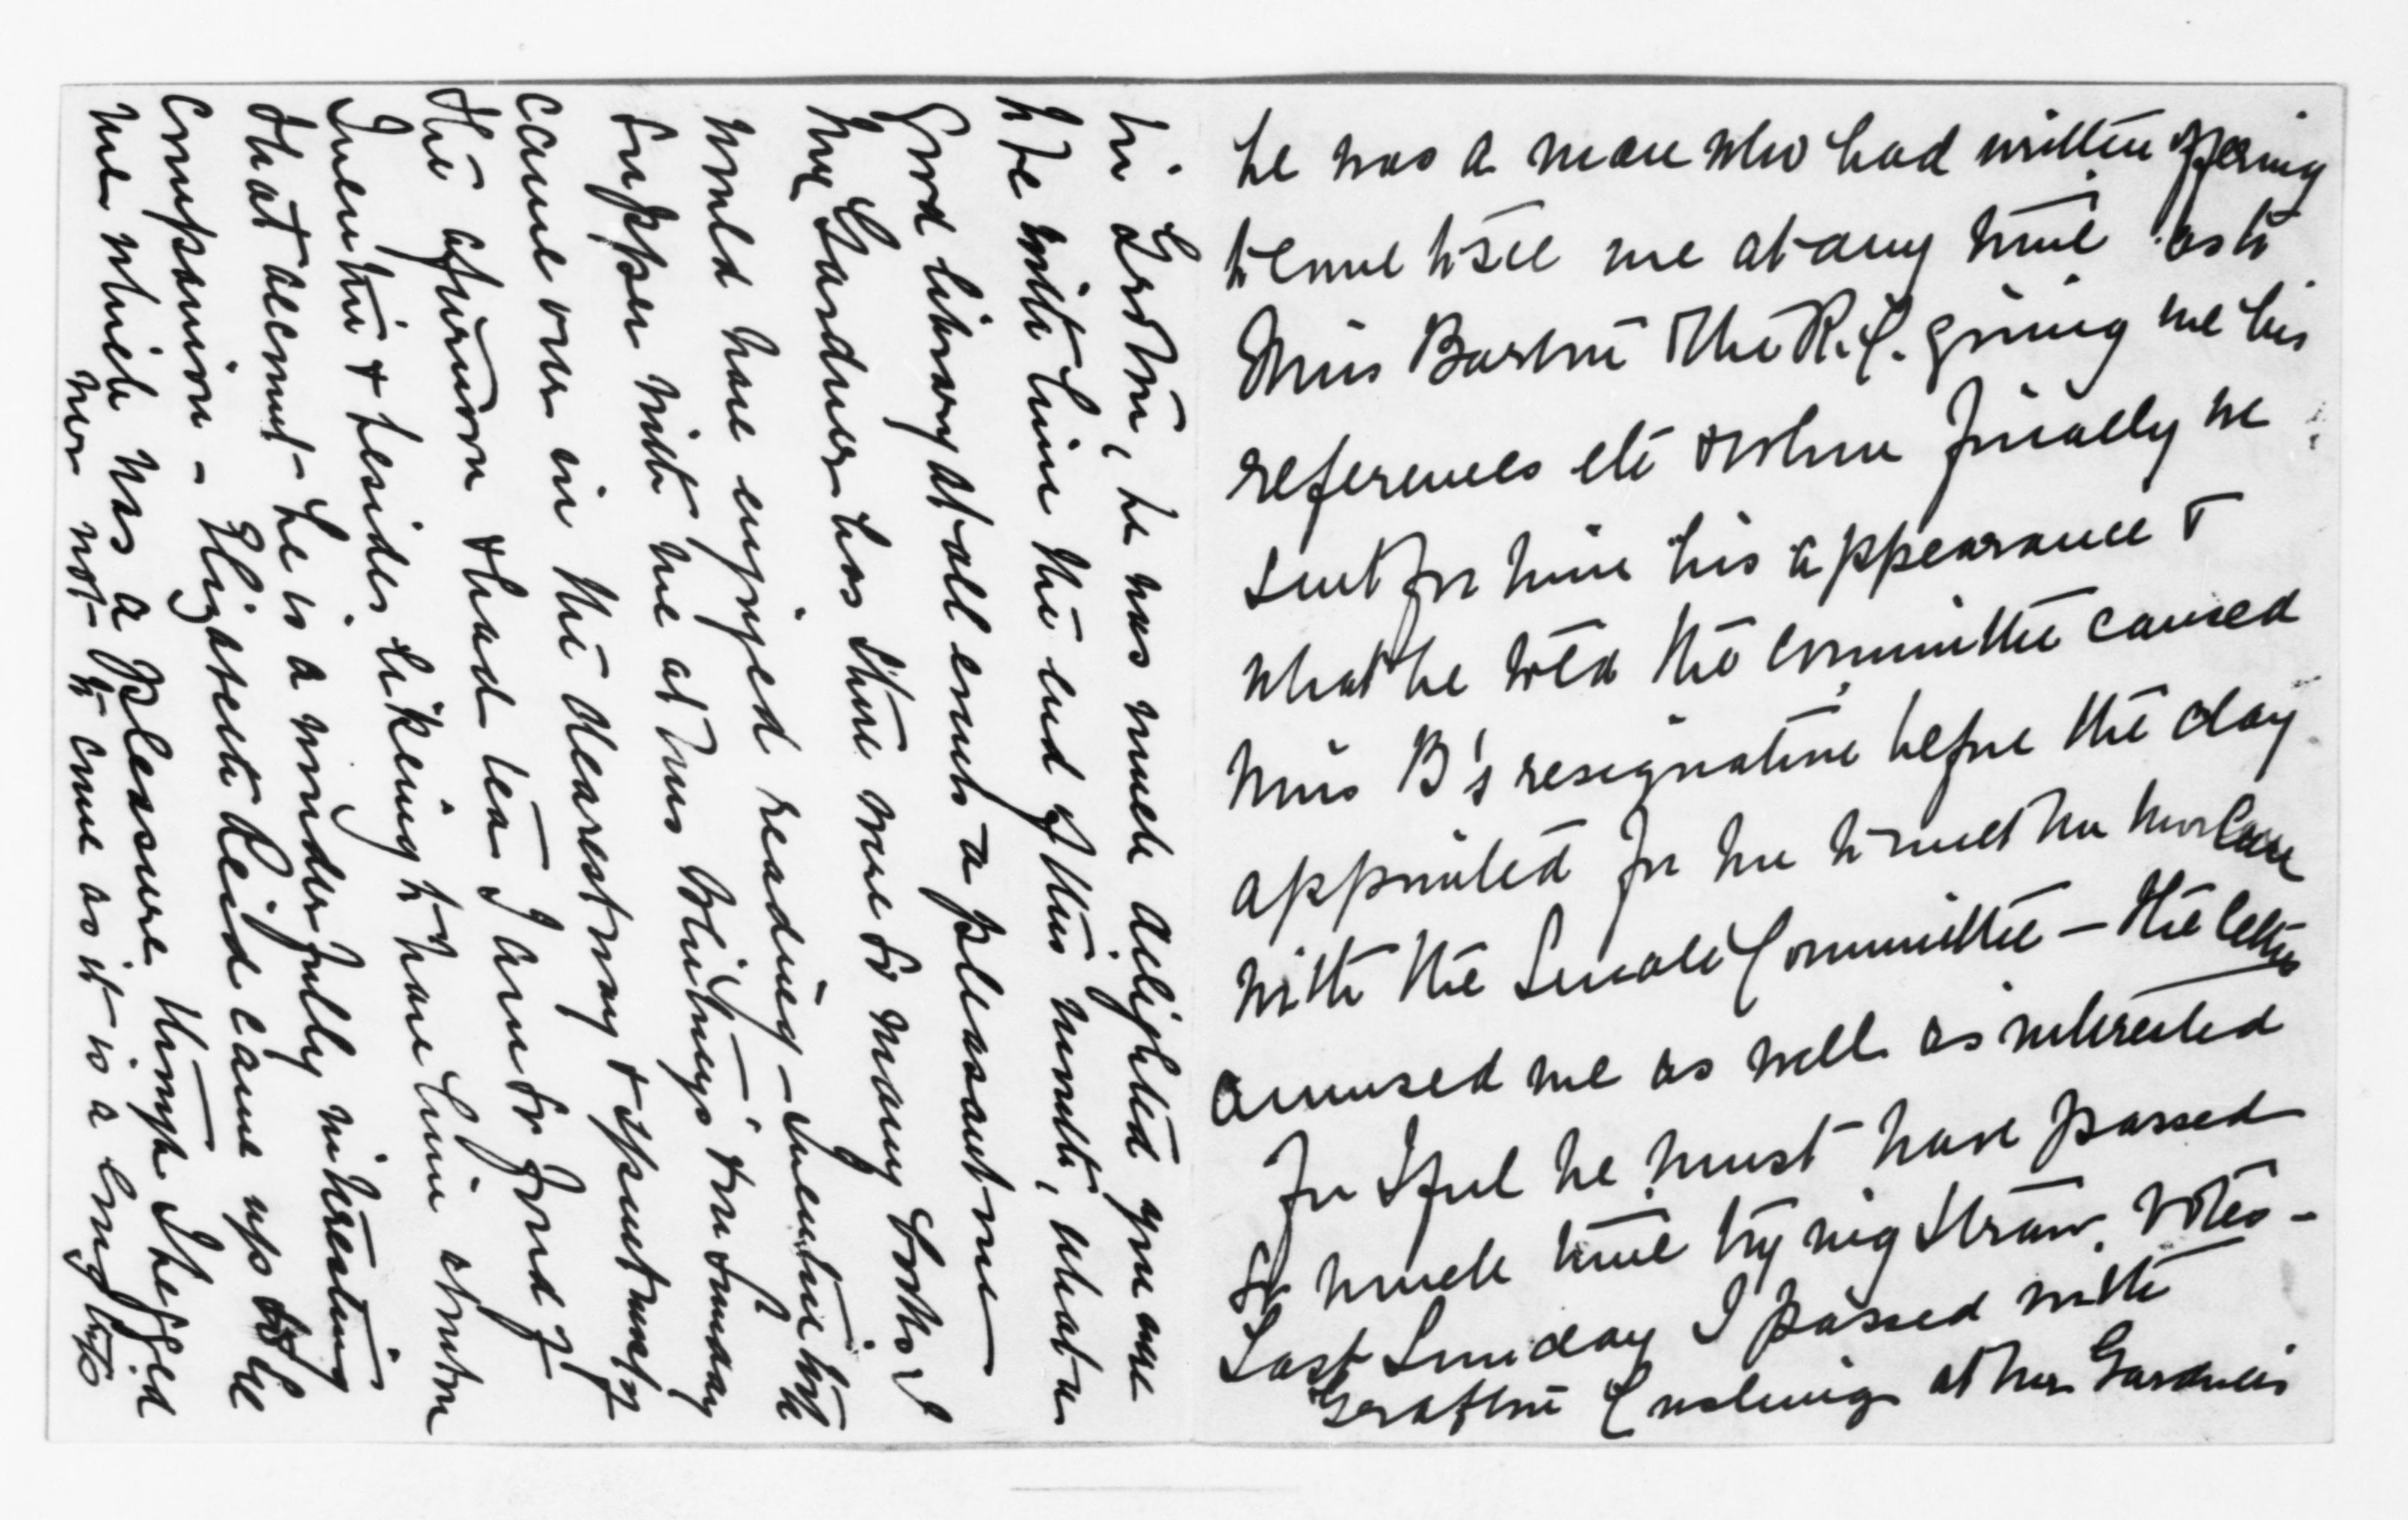 he was a man who had written offering
to come to see me at any time as to
Miss Barton & the R.C. giving me his
references etc & when finally we
sent for him his appearance &
what he told the committee caused
Miss B's resignation before the day
appointed for her to meet her
with the Senate Committee — The letter
amused me as well as interested
for I feel he must have passed
so much time trying straw votes —
Last Sunday I passed with
Grafton Cushing at Mrs Gardner's
in Groton, he was much delighted you are
to be with him the end of this month, what a
good library at all events a pleasant one
Mrs Gardner has there were so many books I
would have enjoyed reading — Quentin took
supper with me at Mrs & on Sunday
came over in the dearest way & spent most of
the afternoon & had tea I am so fond of
Quentin & besides liking to have him on
that account — he is a wonderfully interesting
companion — Elizabeth Reid came up to be
me which was a pleasure though I begged
her not to come as it is a long trip